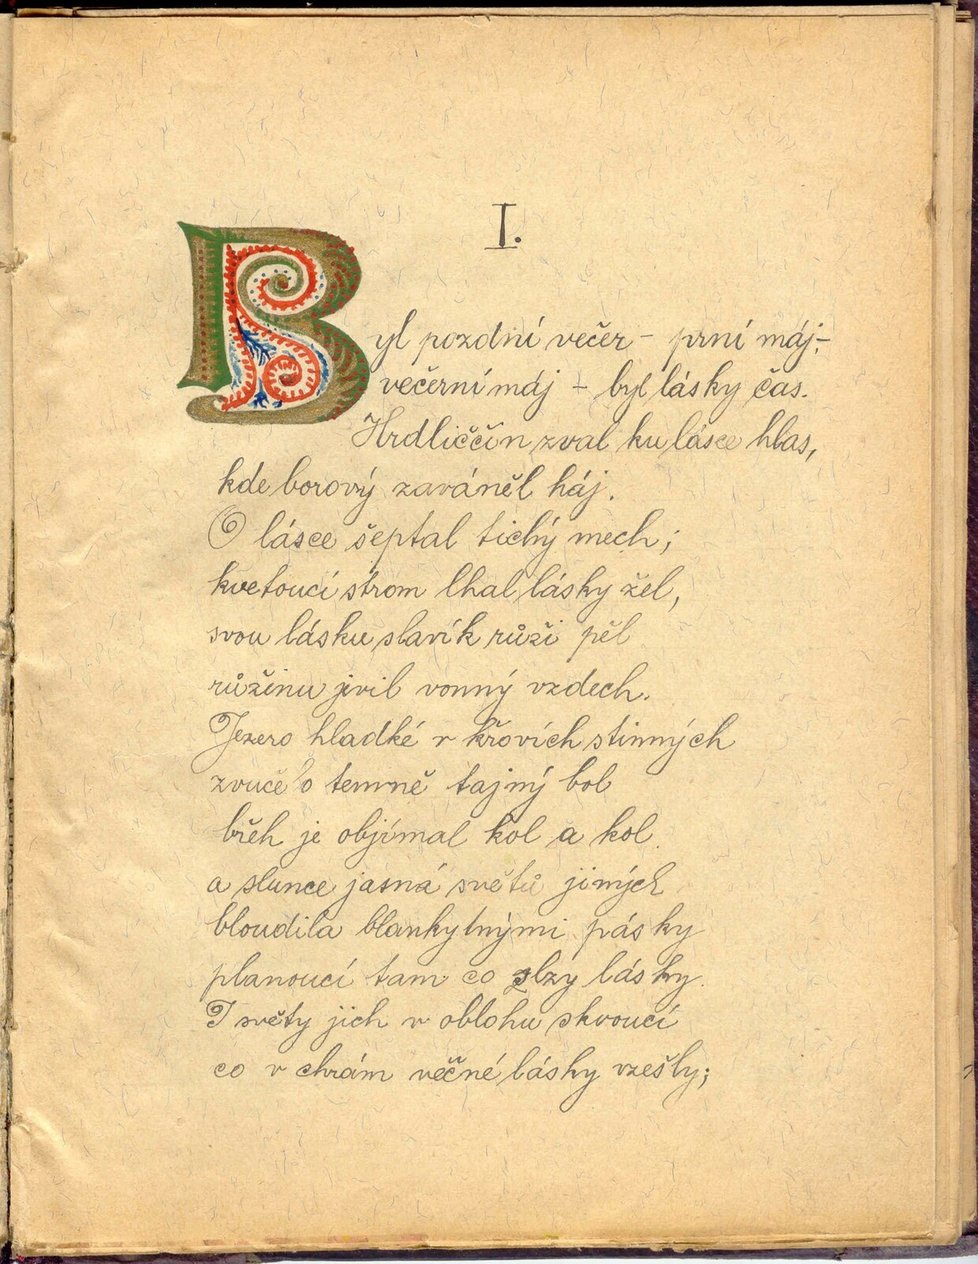 I.
Byl pozdní večer – první máj –
večerní máj – byl lásky čas.
Hrdliččin zval ku lásce hlas,
kde borový zaváněl háj.
O lásce šeptal tichý mech;
kvetoucí strom lhal lásky žel,
svou lásku slavík růži pěl
růžinu jevil vonný vzdech.
Jezero hladké v křovích stinných
zvučelo temně tajný bol
břeh je objímal kol a kol.
a slunce jasná světů jiných
bloudila blankytnými pásky
planoucí tam co slzy lásky.
I světy jich v oblohu skvoucí
co v chrám věčné lásky vzešly;